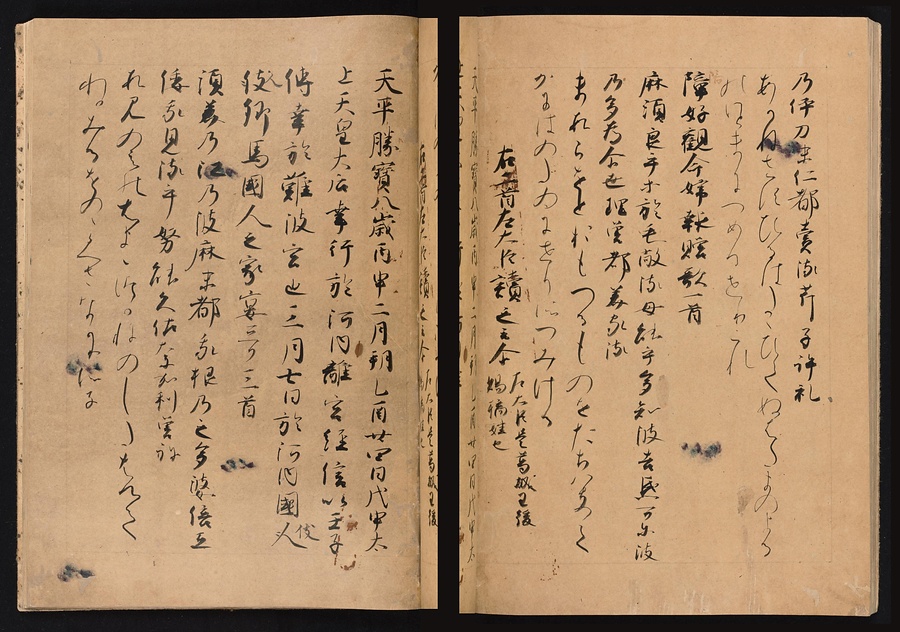 乃伊刀末仁都賣流芹子許礼
あかねさすひるはたゝひてぬはたまのよる
のいとまにつめるせりこれ
薩妙觀命婦報贈歌一首
麻須良乎等於毛敝流母能乎多知波吉弖可尓波
乃多為尓世理曽都美家流
ますらをとおもへるものをたちはきて
かにはのたゐにせりそつみける
右二首左大臣讀之云尓 左大臣是葛城王後
賜橘姓也
天平勝寶八歳丙申二月朔乙酉廿四日戊申太
上天皇大后幸行於河内離宮經信以壬子
傳幸於難波宮也三月七日於河内國人伎
伎郷馬國人之家宴歌三首
須美乃江乃波麻末都我根乃之多婆倍弖
倭我見流乎努能久佐奈加利曽祢
すみのえのはままつかねのしたはへて
わかみるをのゝくさなかりそね